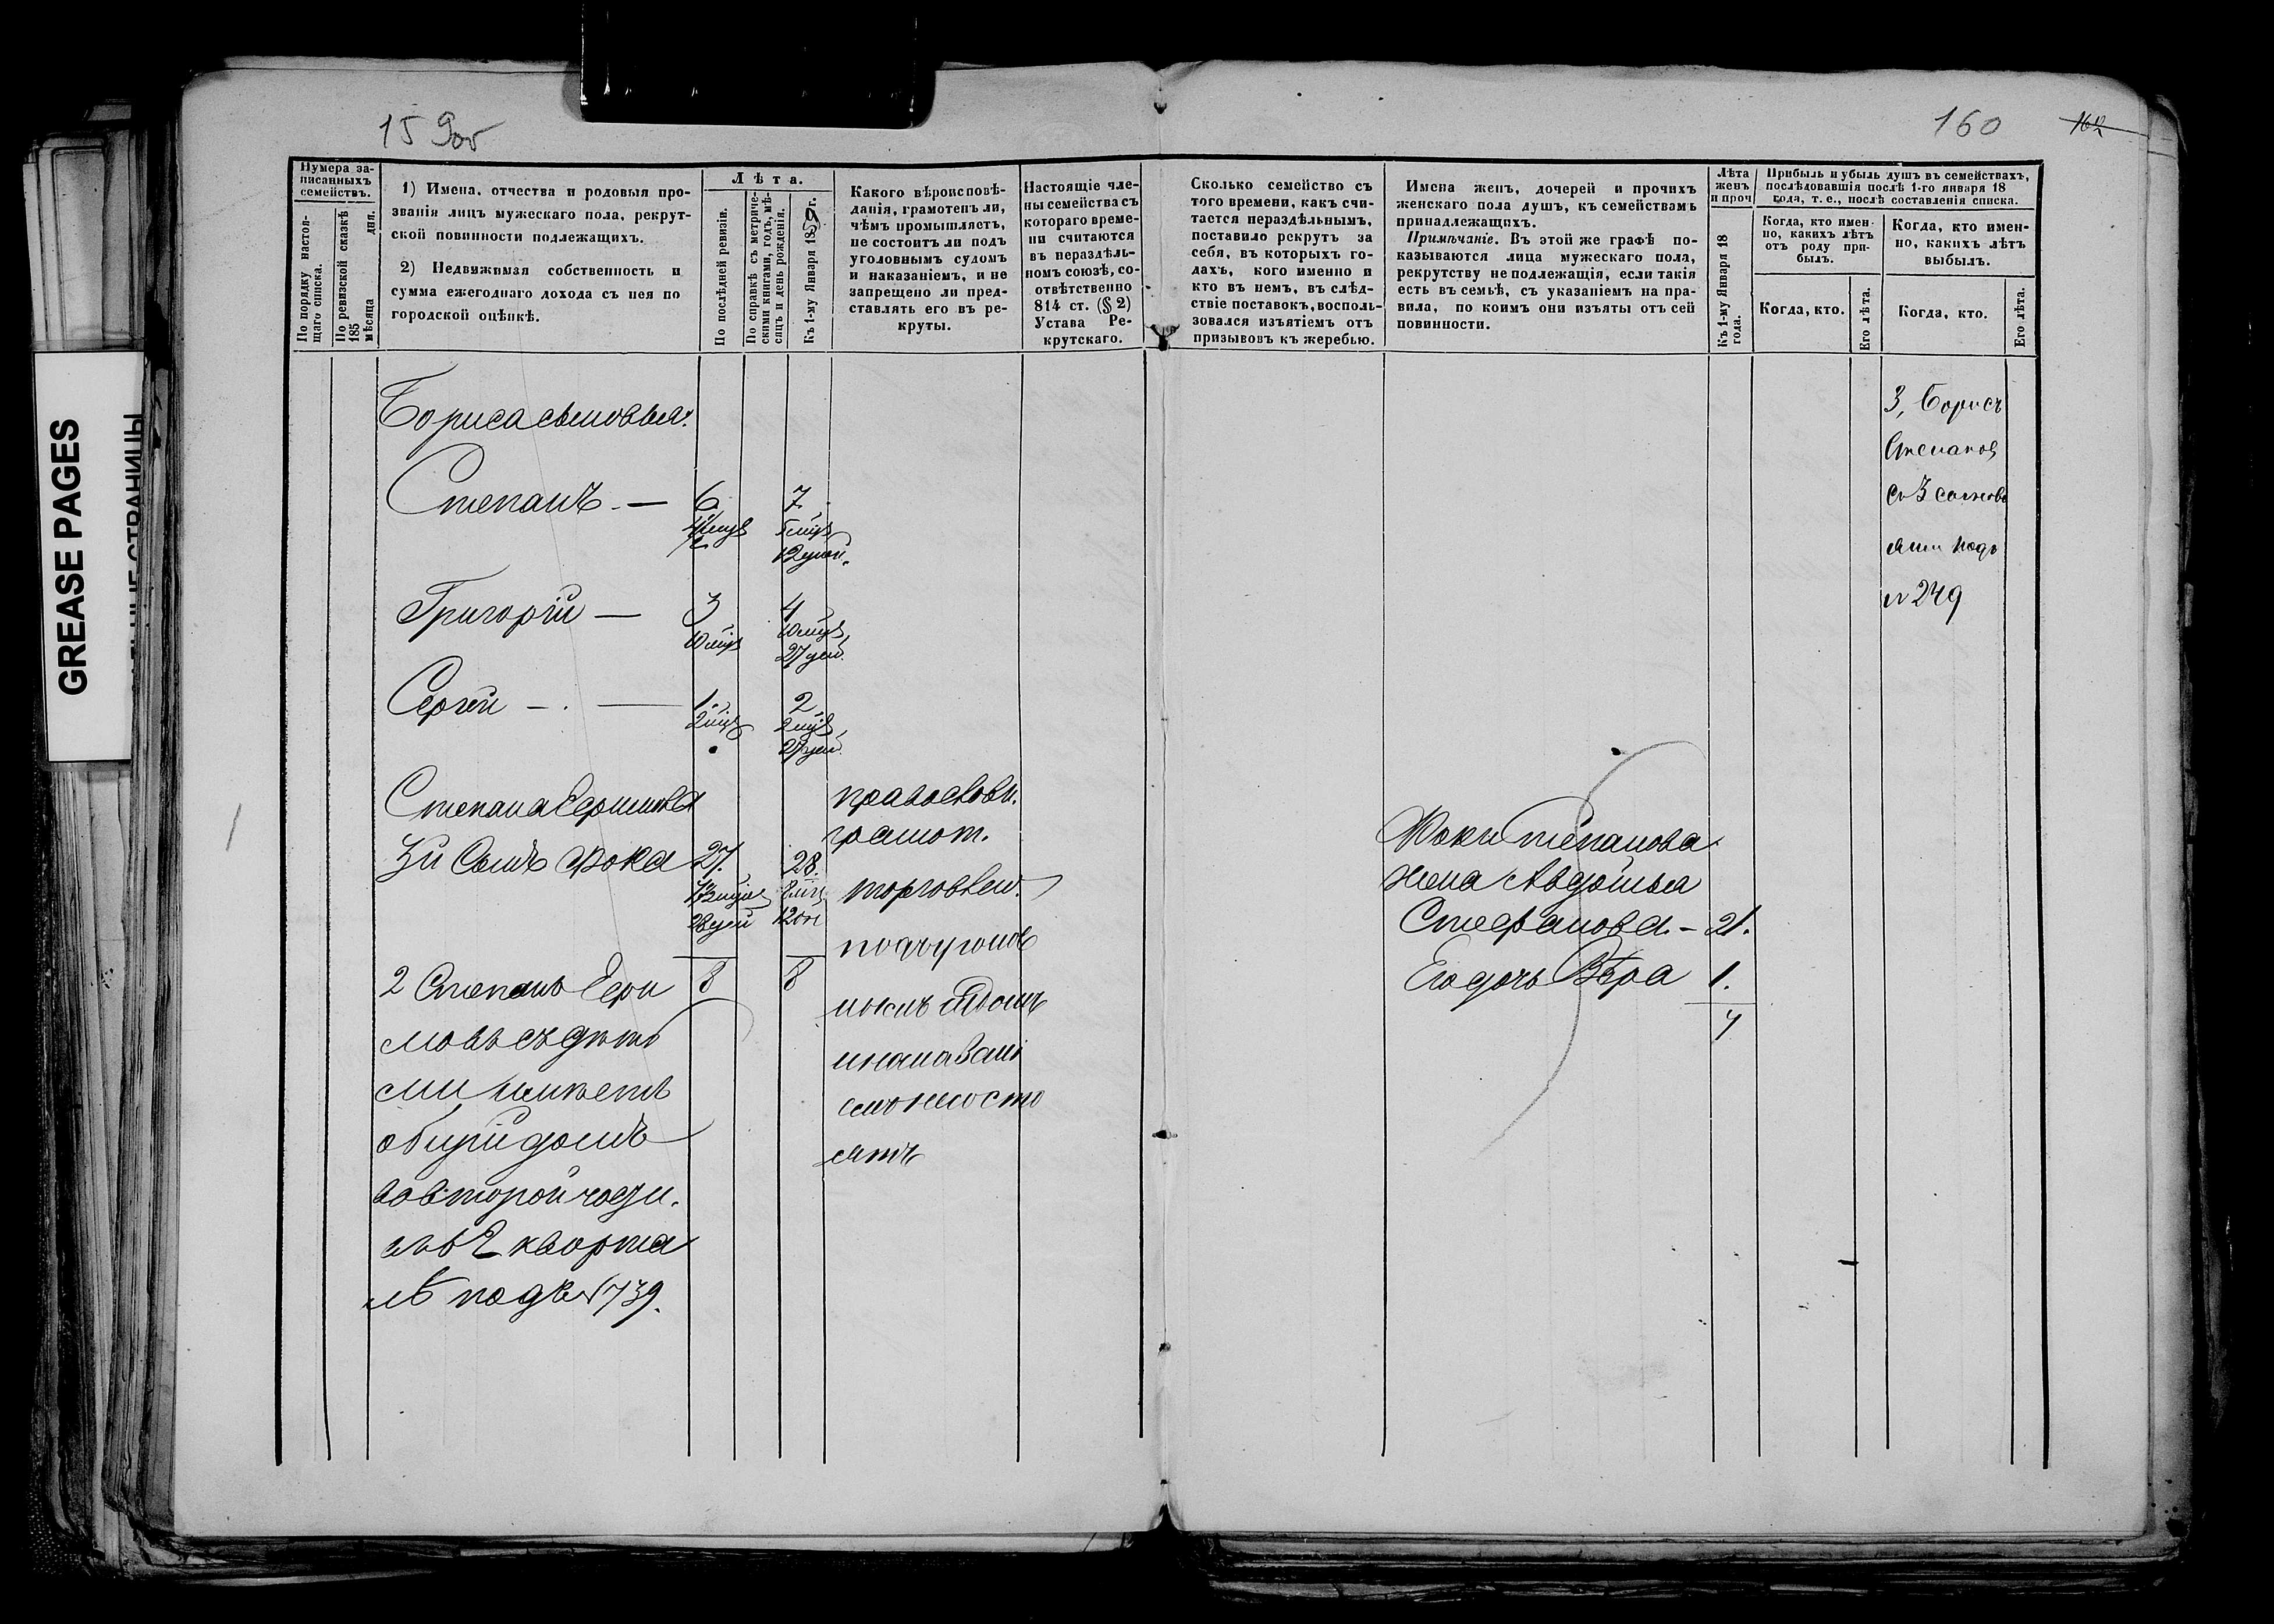 159об
160
162
GREASE PAGES
Нумера записанныхъ семействъ.
По порядку настоящаго списка.
По ревизской сказкѣ 185 мѣсяца дня.
1) Имена, отчества и родовыя прозванія лицъ мужескаго пола, рекрутской повинности подлежащихъ.
2) Недвижимая собственность и сумма ежегоднаго дохода съ нея по городской оцѣнкѣ.
Лѣта.
По послѣдней ревизіи.
По справкѣ съ метрическими книгами, годъ, мѣсяцъ и день рожденія.
Къ 1-му Января 1859 г.
Какого вѣроисповѣданія, грамотенъ ли, чѣмъ промышляетъ, не состоитъ ли подъ уголовнымъ судомъ и наказаніемъ, и не запрещено ли представлять его въ рекруты.
Настоящіе члены семейства съ котораго времени считаются въ нераздѣльномъ союзѣ, соотвѣтственно 814 ст. (§ 2) Устава Рекрутскаго.
Сколько семейство съ того времени, какъ считается нераздѣльнымъ, поставило рекрутъ за себя, въ которыхъ годахъ, кого именно и кто въ немъ, въ слѣдствіе поставокъ, воспользовался изъятіемъ отъ призывовъ къ жеребью.
Имена женъ, дочерей и прочихъ женскаго пола душъ, къ семействамъ принадлежащихъ.
Примѣчаніе. Въ этой же графѣ показываются лица мужескаго пола, рекрутству не подлежащія, если такія есть въ семьѣ, съ указаніемъ на правила, по коимъ они изъяты отъ сей повинности.
Лѣта женъ и проч
Къ 1-му Января 18 года.
Прибыль и убыль душъ въ семействахъ, послѣдовавшія послѣ 1-го января 18 года, т. е., послѣ составленія списка.
Когда, кто именно, какихъ лѣтъ отъ роду прибылъ.
Когда, кто именно, какихъ лѣтъ выбылъ.
Когда, кто.
Его лѣта.
Когда, кто.
Его лѣта.
Бориса сыновья:
Степанъ — 6 7
5 мцв
12 дней.
Григорій — 3 4
10 мцв 10 мцв
27 дней.
Сергѣй — 1. 2
2 мцв 2 мцв
27 дней.
Степана Ефимова
3й Сынъ Фока 27. 28.
8 8
2 Степанъ Ефи
мовъ съ дѣть
ми имѣетъ
общій домъ
во второй части.
въ 2 кварта
лѣ подъ № 739.
православн.
грамот.
торговлею.
подъ судомъ
и наказані
емъ не состо
ятъ
Фоки Степанова
жена Авдотья
Стефанова. – 21.
Его дочь Вѣра 1.
3, Борисъ
Степанов
съ 3 сыновь
ями подъ
№ 249